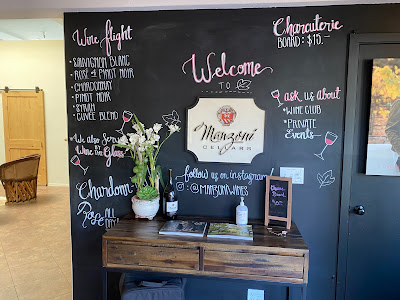 Wine flight
• SAUVIGNON BLANC
• ROSÉ of PINOT NOIR
• CHARDONNAY
• PINOT NOIR
• SYRAH
• CUVÉE BLEND
*We also Serve
Wine by Glass
Chardonn
Rosé
ALL
DAY!
Welcome
TO
Manzoni
CELLARS
follow us on instagram
@MANZONIWINES
Charcuterie
BOARD: $15.—
*ask us about
• WINE CLUB
• PRIVATE
Events